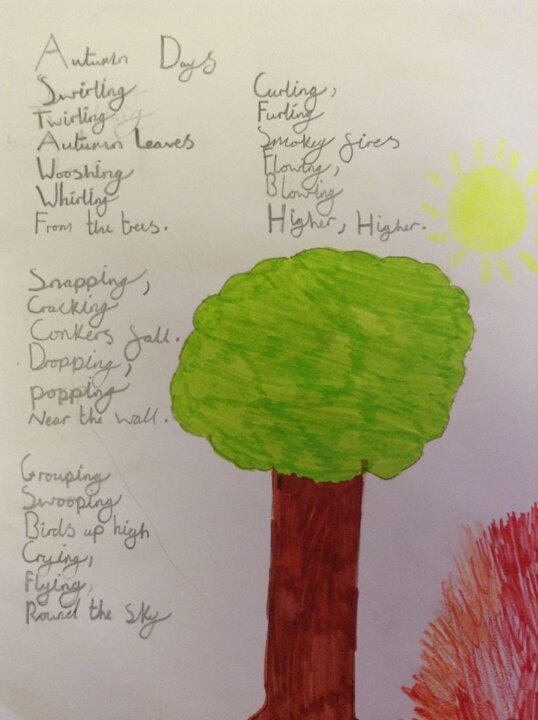 Autumn Days
Swirling
Twirling
Autumn Leaves
Wooshing
Whirling
From the trees.
Snapping,
Cracking
Conkers fall.
Dropping,
popping
Near the wall.
Grouping
Swooping
Birds up high
Crying,
Flying,
Round the Sky
Curling,
Furling
Smokey fires
Flowing,
Blowing
Higher, Higher.